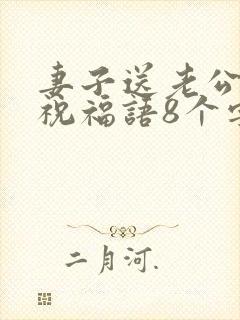 妻子送老公
祝福語8个字
二月河.